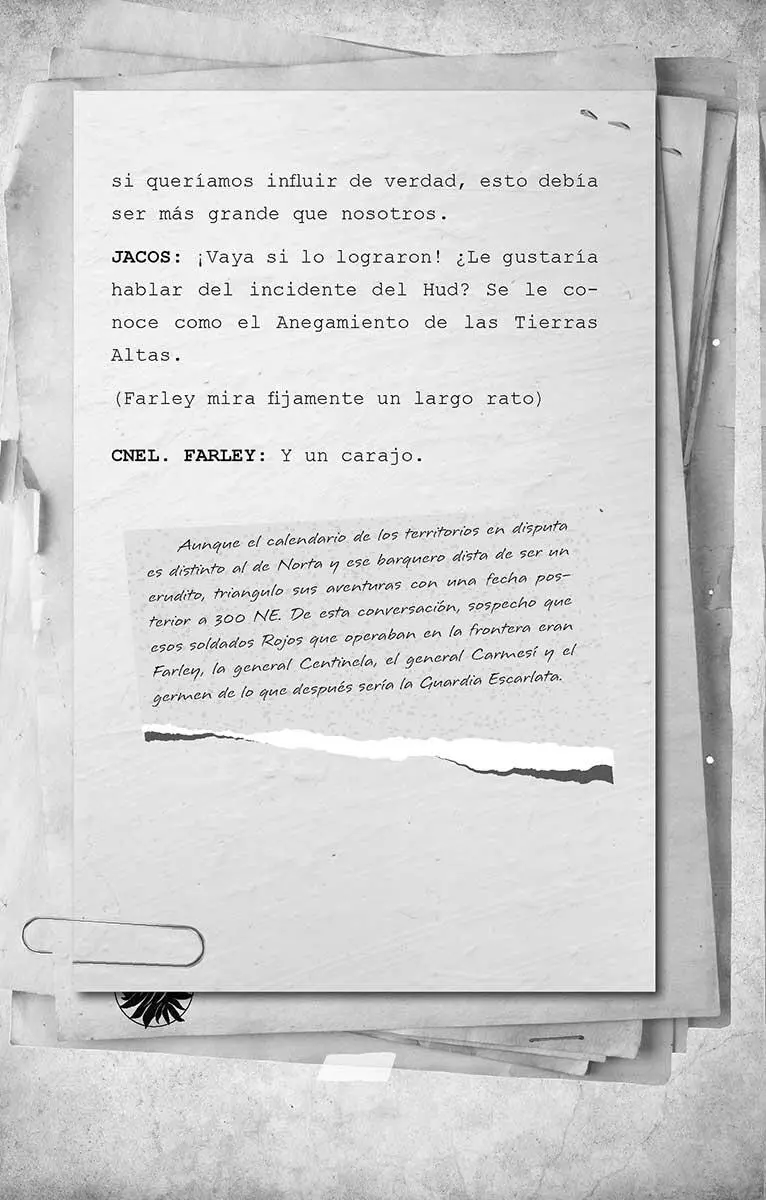 si queríamos influir de verdad, esto debía
ser más grande que nosotros.
JACOS: ¡Vaya si lo lograron! ¿Le gustaría
hablar del incidente del Hud? Se le co-
noce como el Anegamiento de las Tierras
Altas.
(Farley mira fijamente un largo rato)
CNEL. FARLEY: Y un carajo.
Aunque el calendario de los territorios en disputa
es distinto al de Norta y ese barquero dista de ser un
erudito, triangulo sus aventuras con una fecha pos-
terior a 300 NE. De esta conversación, sospecho que
esos soldados Rojos que operaban en la frontera eran
Farley, la general Centinela, el general Carmesí y el
germen de lo que después sería la Guardia Escarlata.